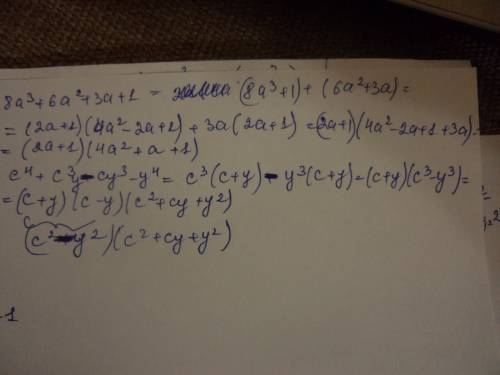 8a³+6a²+3a+1 = (8a³+1)+(6a²+3a)=
=(2a+1)(4a²-2a+1)+3a(2a+1)=(2a+1)(4a²-2a+1+3a)=
=(2a+1)(4a²+a+1)
c⁴+c³y-cy³-y⁴=c³(c+y)-y³(c+y)=(c+y)(c³-y³)=
=(c+y)(c-y)(c²+cy+y²)
(c²-y²)(c²+cy+y²)
-1